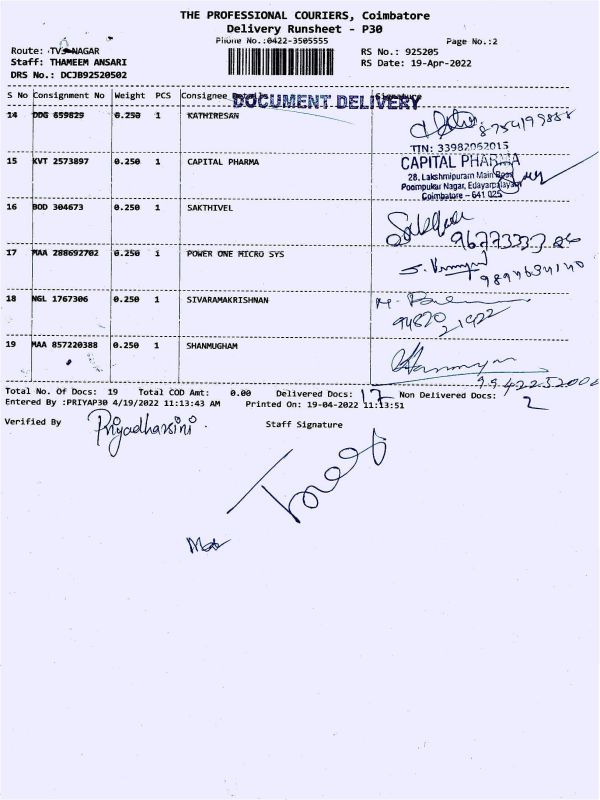 THE PROFESSIONAL COURIERS, Coimbatore
Delivery Runsheet - P30
Phone No.:0422-3505555
Page No.:2
Route: TVS NAGAR
RS No.: 925205
Staff: THAMEEM ANSARI
RS Date: 19-Apr-2022
DRS No.: DCJB92520502
S No Consignment No Weight PCS Consignee Details Signature
DOCUMENT DELIVERY
14 DDG 659829 0.250 1 KATHIRESAN
8754199888
TIN: 33982062015
15 KVT 2573897 0.250 1 CAPITAL PHARMA CAPITAL PHARMA
28, Lakshmipuram Main Road
Poompukar Nagar, Edayarpalayam
Coimbatore - 641 025
16 BOD 304673 0.250 1 SAKTHIVEL
17 MAA 288692702 0.250 1 POWER ONE MICRO SYS
18 NGL 1767306 0.250 1 SIVARAMAKRISHNAN
94870 21922
19 MAA 857220388 0.250 1 SHANMUGHAM
Total No. Of Docs: 19 Total COD Amt: 0.00 Delivered Docs: 17 Non Delivered Docs: 2
Entered By :PRIYAP30 4/19/2022 11:13:43 AM Printed On: 19-04-2022 11:13:51
Verified By Priyadharsini. Staff Signature